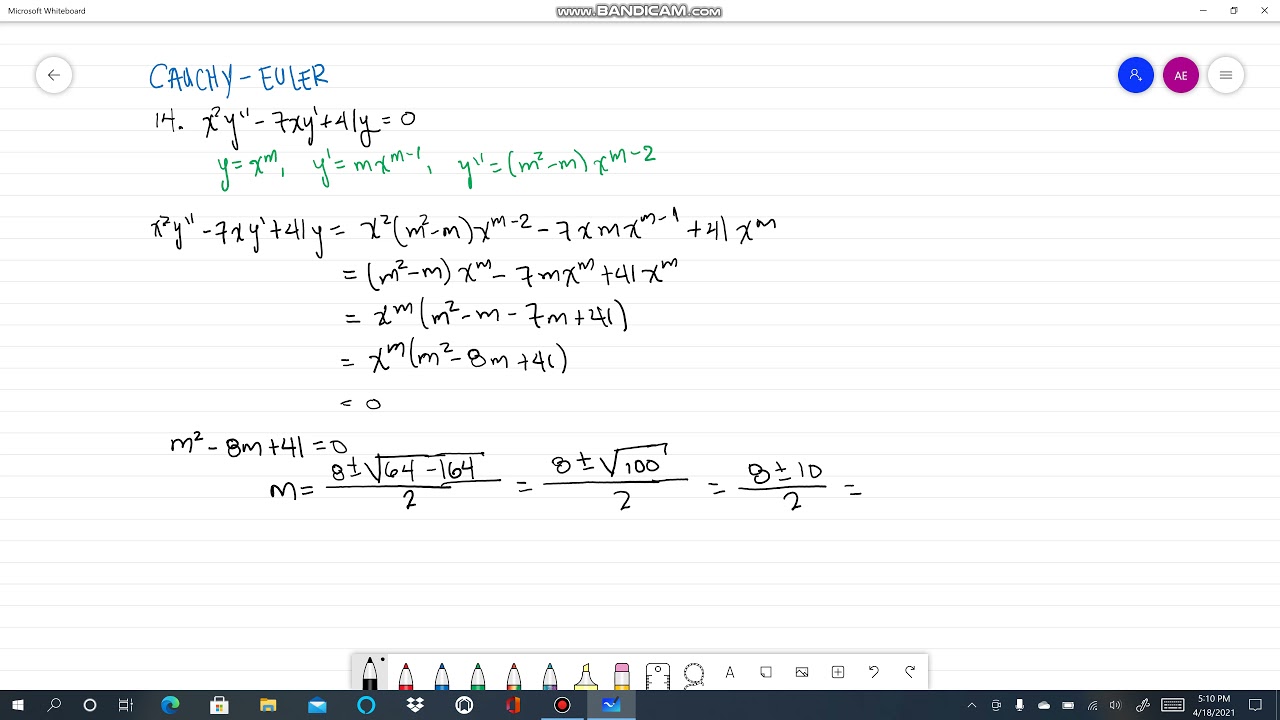 Microsoft Whiteboard
www.BANDICAM.com
CAUCHY-EULER
AE
14. x²y'' - 7xy' + 41y = 0
y = x^m, y' = mx^(m-1), y'' = (m²-m) x^(m-2)
x²y'' - 7xy' + 41y = x²(m²-m)x^(m-2) - 7xmx^(m-1) + 41x^m
= (m²-m) x^m - 7mx^m + 41x^m
= x^m(m² - m - 7m + 41)
= x^m(m² - 8m + 41)
= 0
m² - 8m + 41 = 0
m = (8 ± √(64 - 164))/2 = (8 ± √100)/2 = (8 ± 10)/2 =
A
5:10 PM
4/18/2021